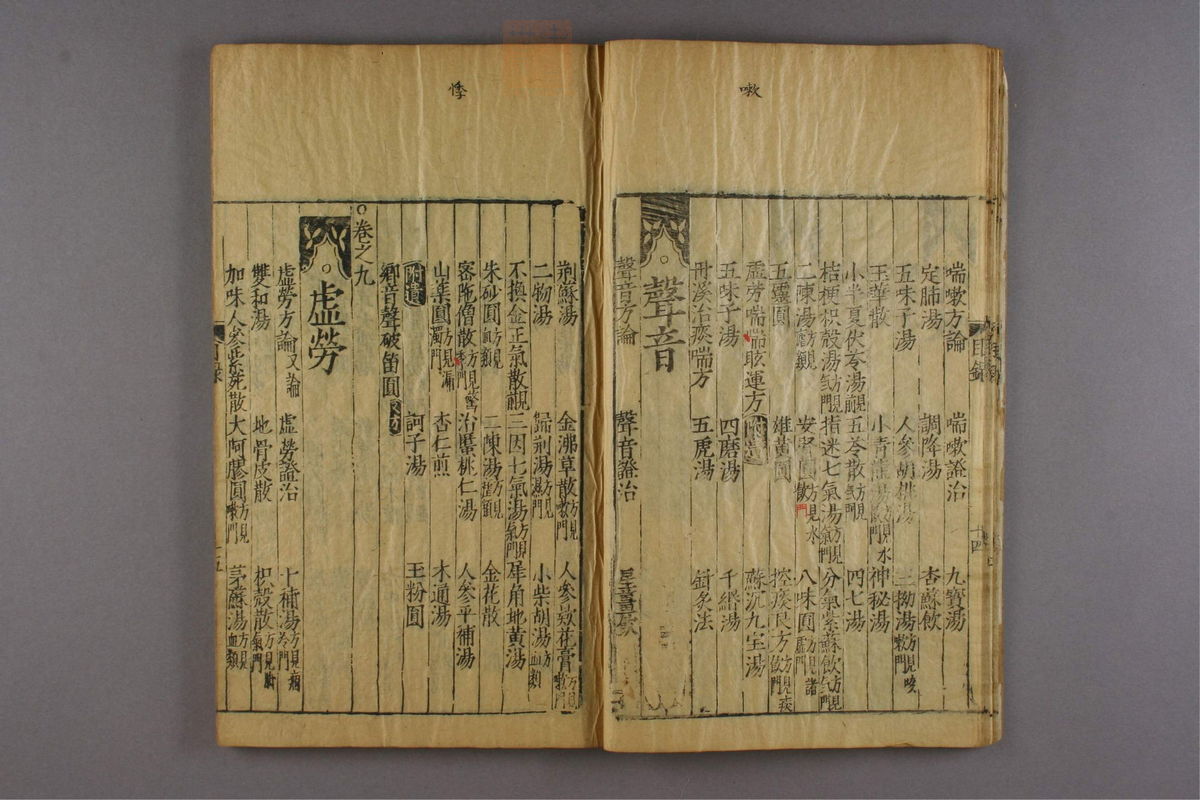 嗽
喘嗽方論 喘嗽證治 九寶湯
定肺湯 調降湯 杏蘇飲
五味子湯 人參胡桃湯 三拗湯方見咳嗽門
玉華散 小青龍湯 神秘湯
小半夏伏苓湯 五苓散 四七湯
桔梗枳殼湯方見氣門 指迷七氣湯方見氣門 分氣紫蘇飲方見氣門
二陳湯 安腎圓 八味圓
五靈圓 雄黃圓 控痰良方
虛勞喘喘眩運方 附遺 蘇沉九宝湯
五味子湯 四磨湯 千緡湯
丹溪治痰喘方 五虎湯 針灸法
聲音
聲音方論 聲音證治
悸
荆蘇湯 金沸草散 人參欸花膏
二物湯 歸荊湯 小柴胡湯
不換金正氣散 三因七氣湯方見氣門 犀角地黃湯
朱砂圓 二陳湯 金花散
密陁僧散 治𧏾桃仁湯 人參平補湯
山藥圓 杏仁煎 木通湯
附遺 訶子湯 玉粉圓
鄉音聲破笛圓
卷之九
虛勞
虛勞方論又論 虛勞證治 十補湯
雙和湯 地骨皮散 枳殼散
加味人參紫菀散 大阿膠圓 茅蘇湯